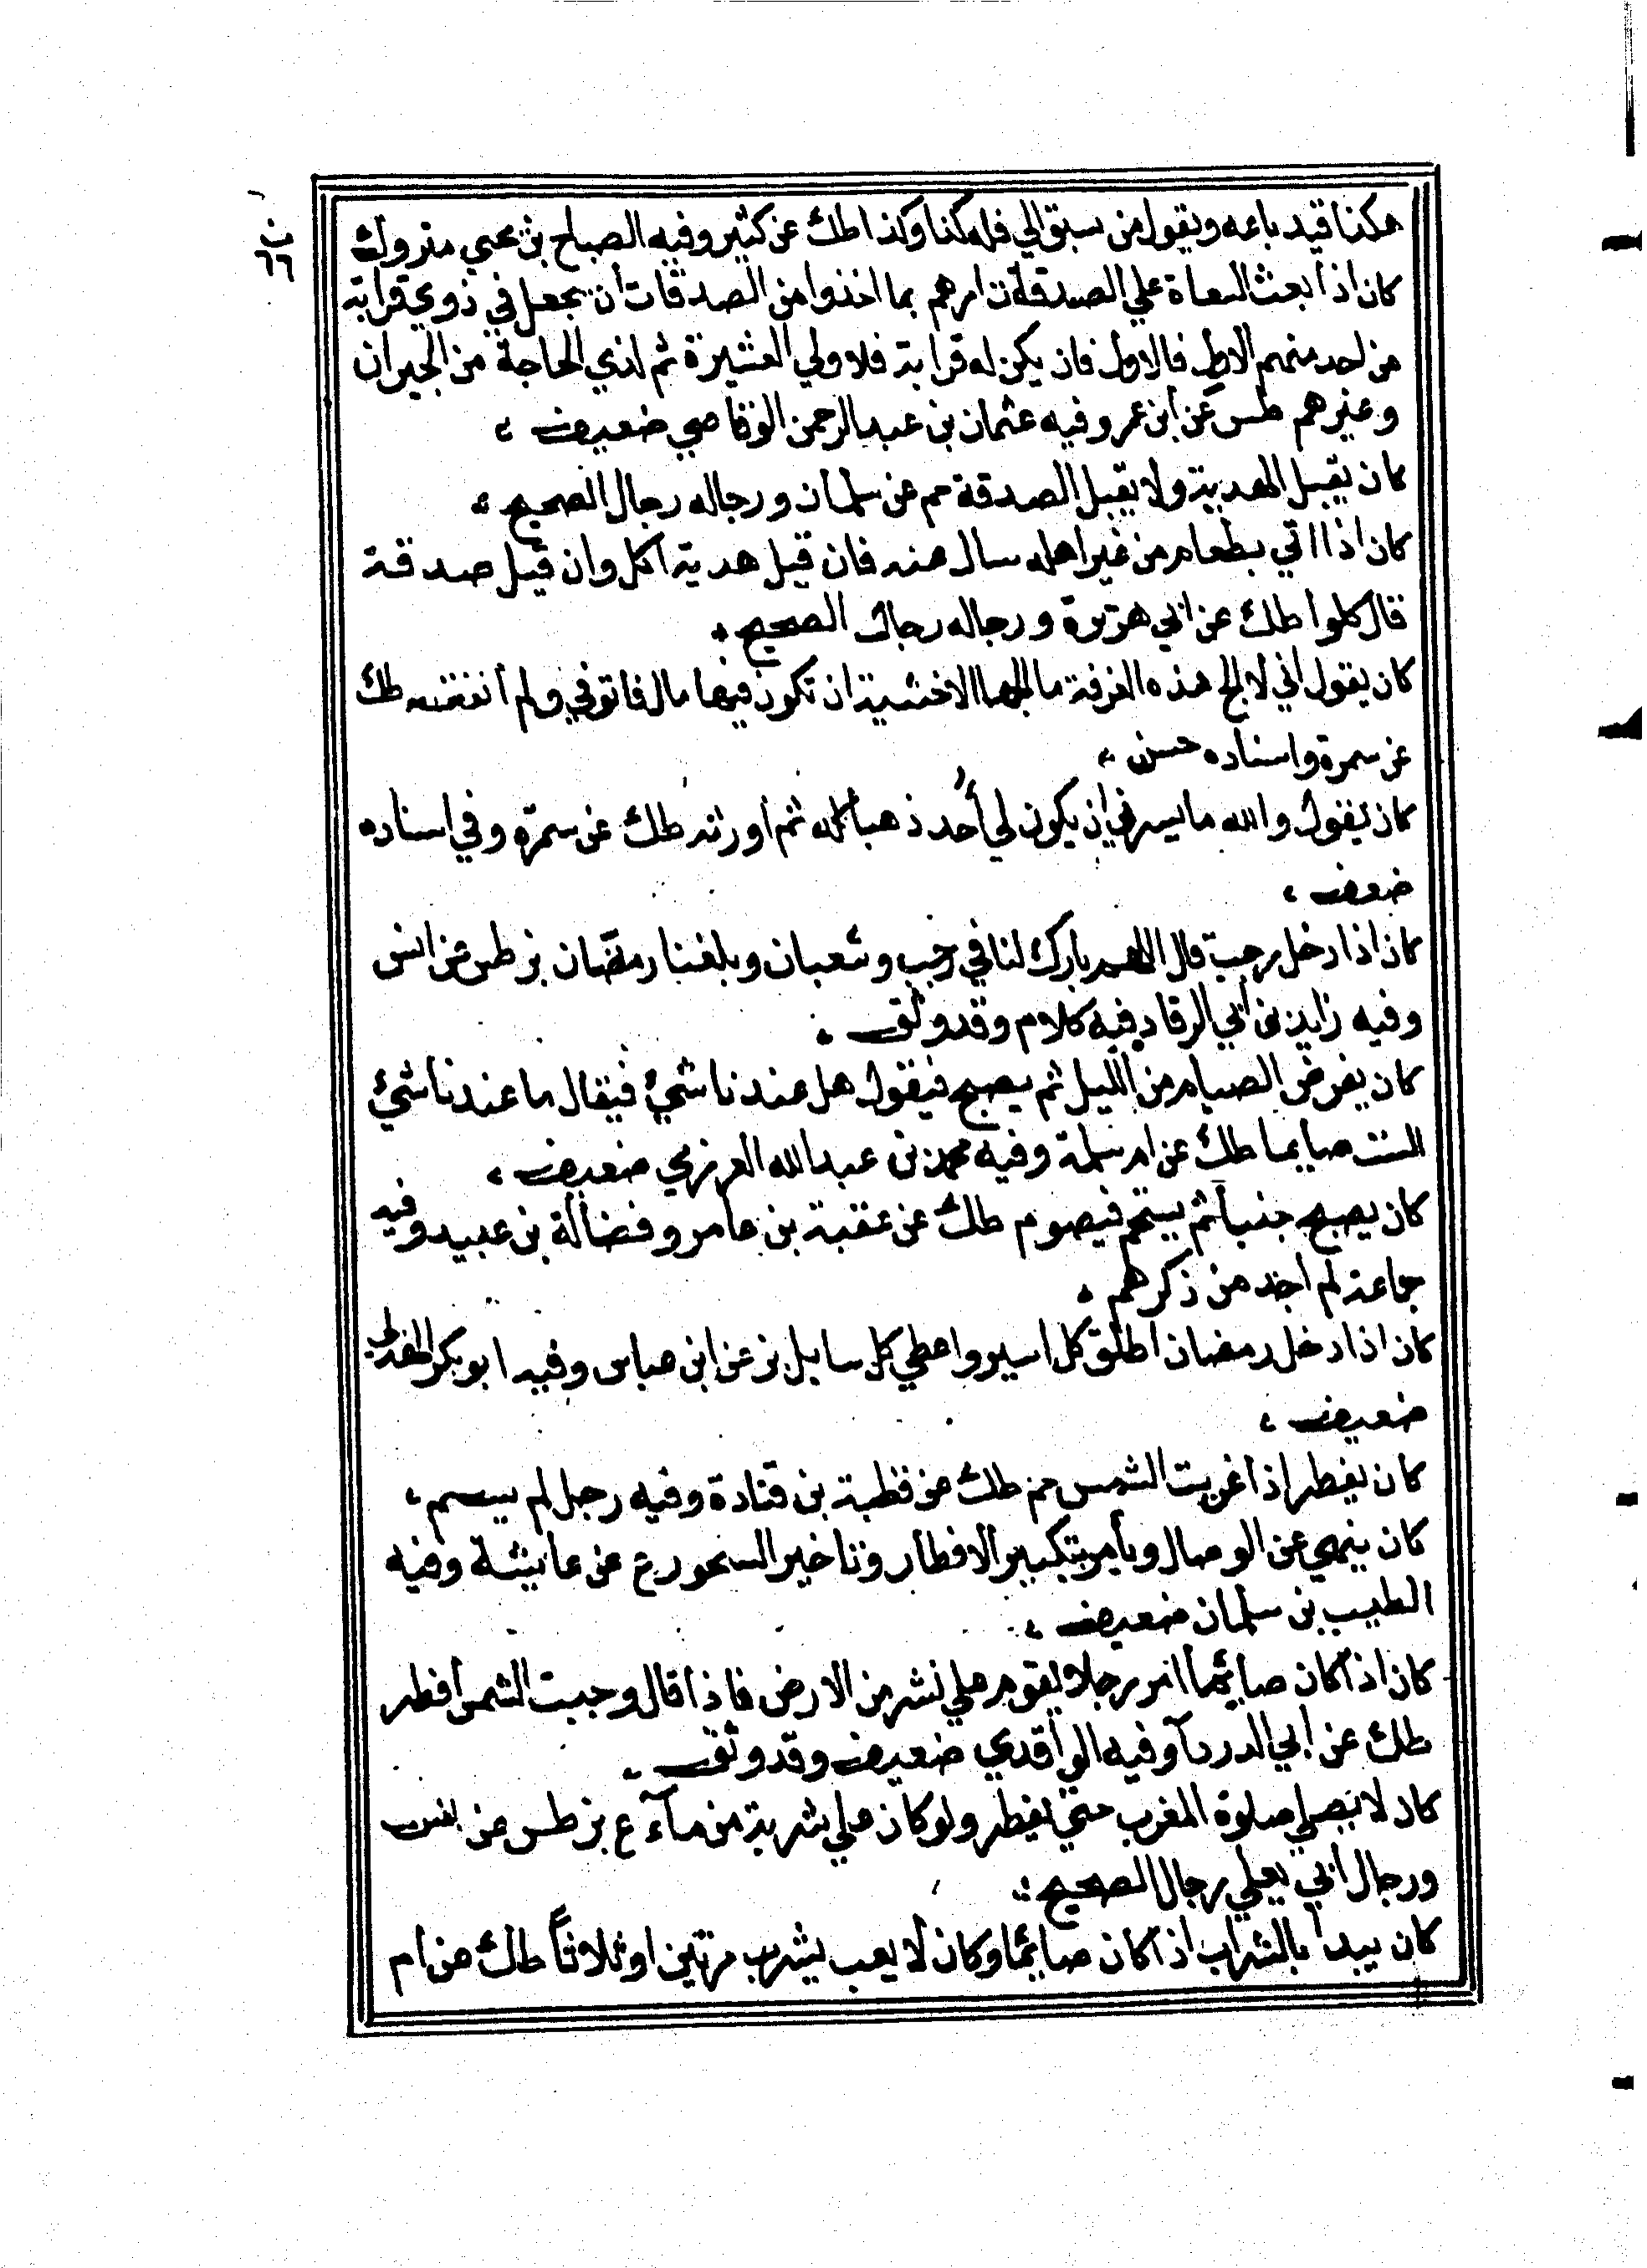 هكذا قيد باعه ويقول من سبق الي فله كذا وكذا طك عن كثير وفيه الصباح بن يحيي متروك
كان اذا بعث السعاة علي الصدقات امرهم بما اخذوا من الصدقات ان يجعل في ذوي قرابة
من احد منهم الاول فالاول فان يكن له قرابة فلاولي العشيرة ثم لذي الحاجة من الجيران
وغيرهم طس عن ابن عمر وفيه عثمان بن عبد الرحمن الوقاصي ضعيف
كان يقبل الهدية ولا يقبل الصدقة حم عن سلمان ورجاله رجال الصحيح
كان اذا اتي بطعام من غير اهله سال عنه فان قيل هدية اكل وان قيل صدقة
قال كلوا طك عن ابي هريرة ورجاله رجال الصحيح
كان يقول اني لالج هذه الغرفة ما الجها الا خشية ان تكون فيها مال فاتوفي ولم انفقه طك
عن سمرة واسناده حسن
كان يقول والله ما يسرني ان يكون لي أحد ذهبا كله ثم اورثه طك عن سمرة وفي اسناده
ضعف
كان اذا دخل رجب قال اللهم بارك لنا في رجب وشعبان وبلغنا رمضان بز طس عن انس
وفيه زايدة بن ابي الرقاد فيه كلام وقد وثق
كان يفرض الصيام من الليل ثم يصبح فيقول هل عندنا شيء فيقال ما عندنا شيء
الست صايما طك عن ام سلمة وفيه محمد بن عبد الله العرزمي ضعيف
كان يصبح جنبا ثم يستحم فيصوم طك عن عقبة بن عامر وفضالة بن عبيد وفيه
جماعة لم اجد من ذكرهم
كان اذا دخل رمضان اطلق كل اسير واعطي كل سايل بز عن ابن عباس وفيه ابو بكر الهذلي
ضعيف
كان يفطر اذا غربت الشمس حم طك عن قطبة بن قتادة وفيه رجل لم يسم
كان ينهي عن الوصال ويأمر بتكبير الافطار وتاخير السحور ع عن عايشة وفيه
الطيب بن سلمان ضعيف
كان اذا كان صائما امر رجلا يقوم علي نشر من الارض فاذا قال وجبت الشمس أفطر
طك عن ابي الدردآ وفيه الواقدي ضعيف وقد وثق
كان لا يصلي صلوة المغرب حتي يفطر ولو كان علي شربة من مآء ع بز طس عن انس
ورجال ابي يعلي رجال الصحيح
كان يبدأ بالشراب اذا كان صائما وكان لا يعب يشرب مرتين او ثلاثاً طك عن ام